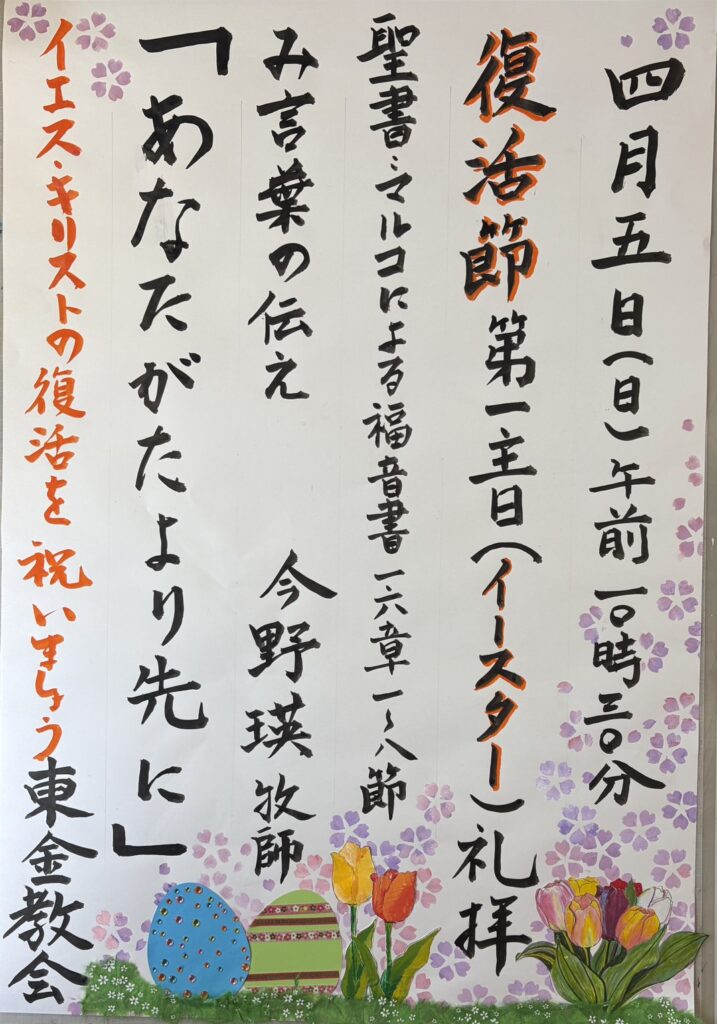 四月五日(日)午前一〇時三〇分
復活節第一主日(イースター)礼拝
聖書:マルコによる福音書一六章一~八節
み言葉の伝え 今野瑛牧師
「あなたがたより先に」
イエス・キリストの復活を祝いましょう東金教会